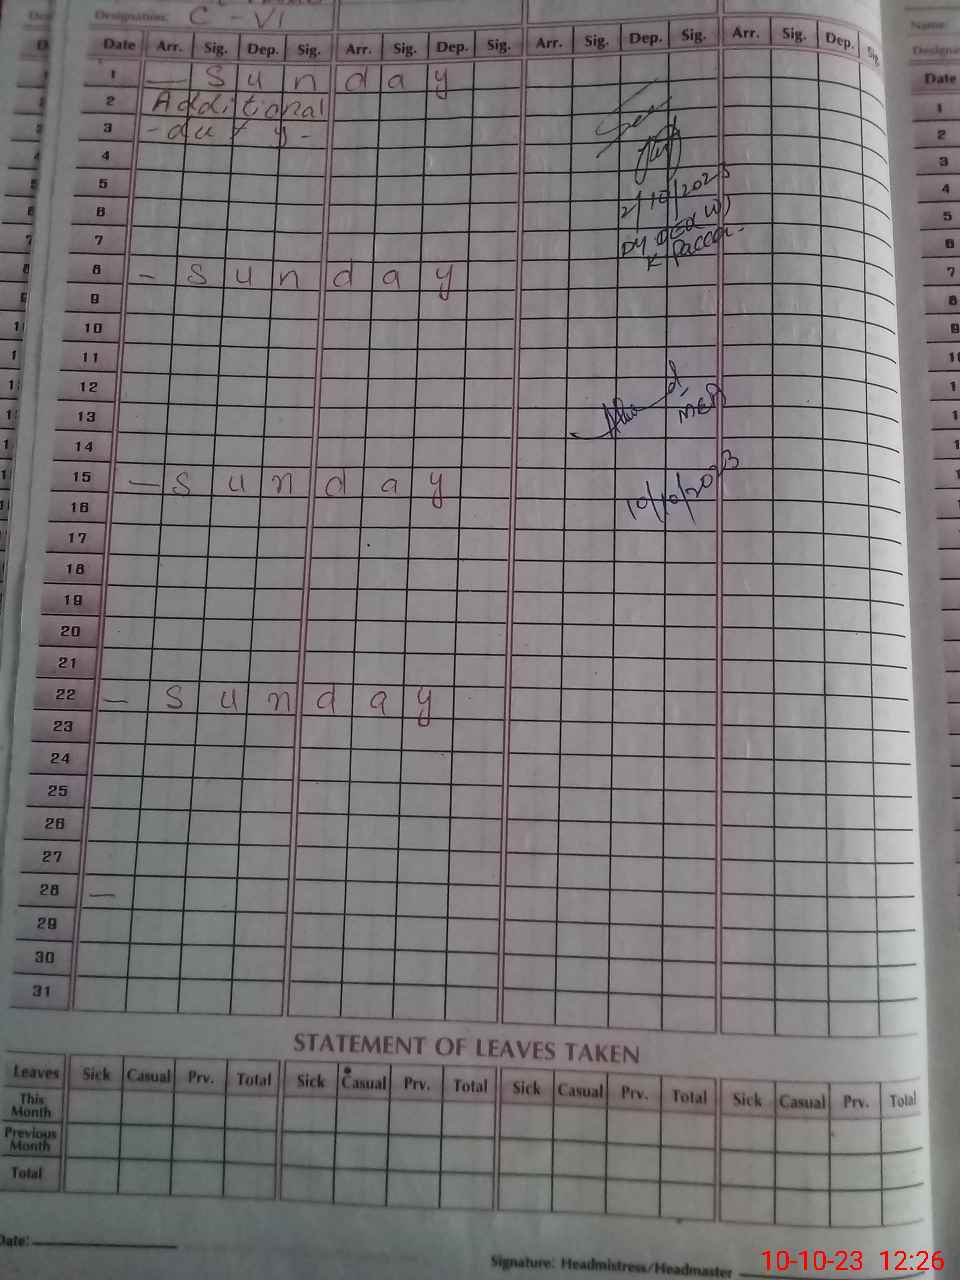 Designation: C - VI
Name:
Date Arr. Sig. Dep. Sig. Arr. Sig. Dep. Sig. Arr. Sig. Dep. Sig. Arr. Sig. Dep. Sig.
Date
1 - Sunday
2 Additional
3 - duty -
4
5
6
7
8 - Sunday
9
10
11
12
13
14
15 - Sunday
16
17
18
19
20
21
22 - Sunday
23
24
25
26
27
28 -
29
30
31
2/10/2023
MEA
10/10/2023
STATEMENT OF LEAVES TAKEN
Leaves Sick Casual Prv. Total Sick Casual Prv. Total Sick Casual Prv. Total Sick Casual Prv. Total
This Month
Previous Month
Total
Date:
Signature: Headmistress/Headmaster
10-10-23 12:26